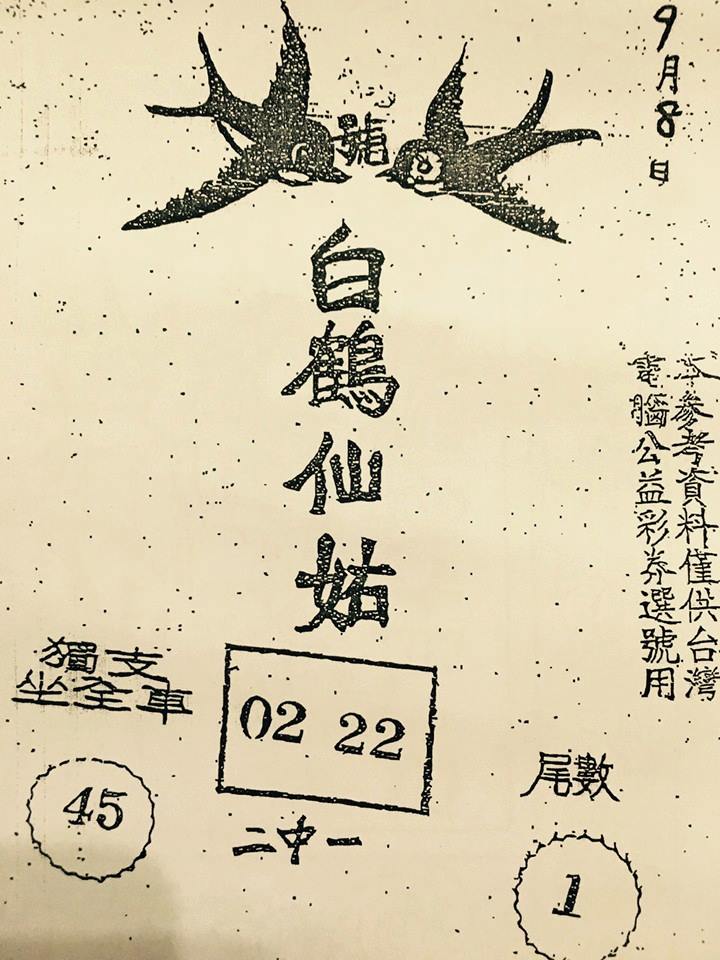 9月8日
號
白鶴仙姑
本參考資料僅供台灣
電腦公益彩券選號用
獨支
坐全車
45
02 22
二中一
尾數
1